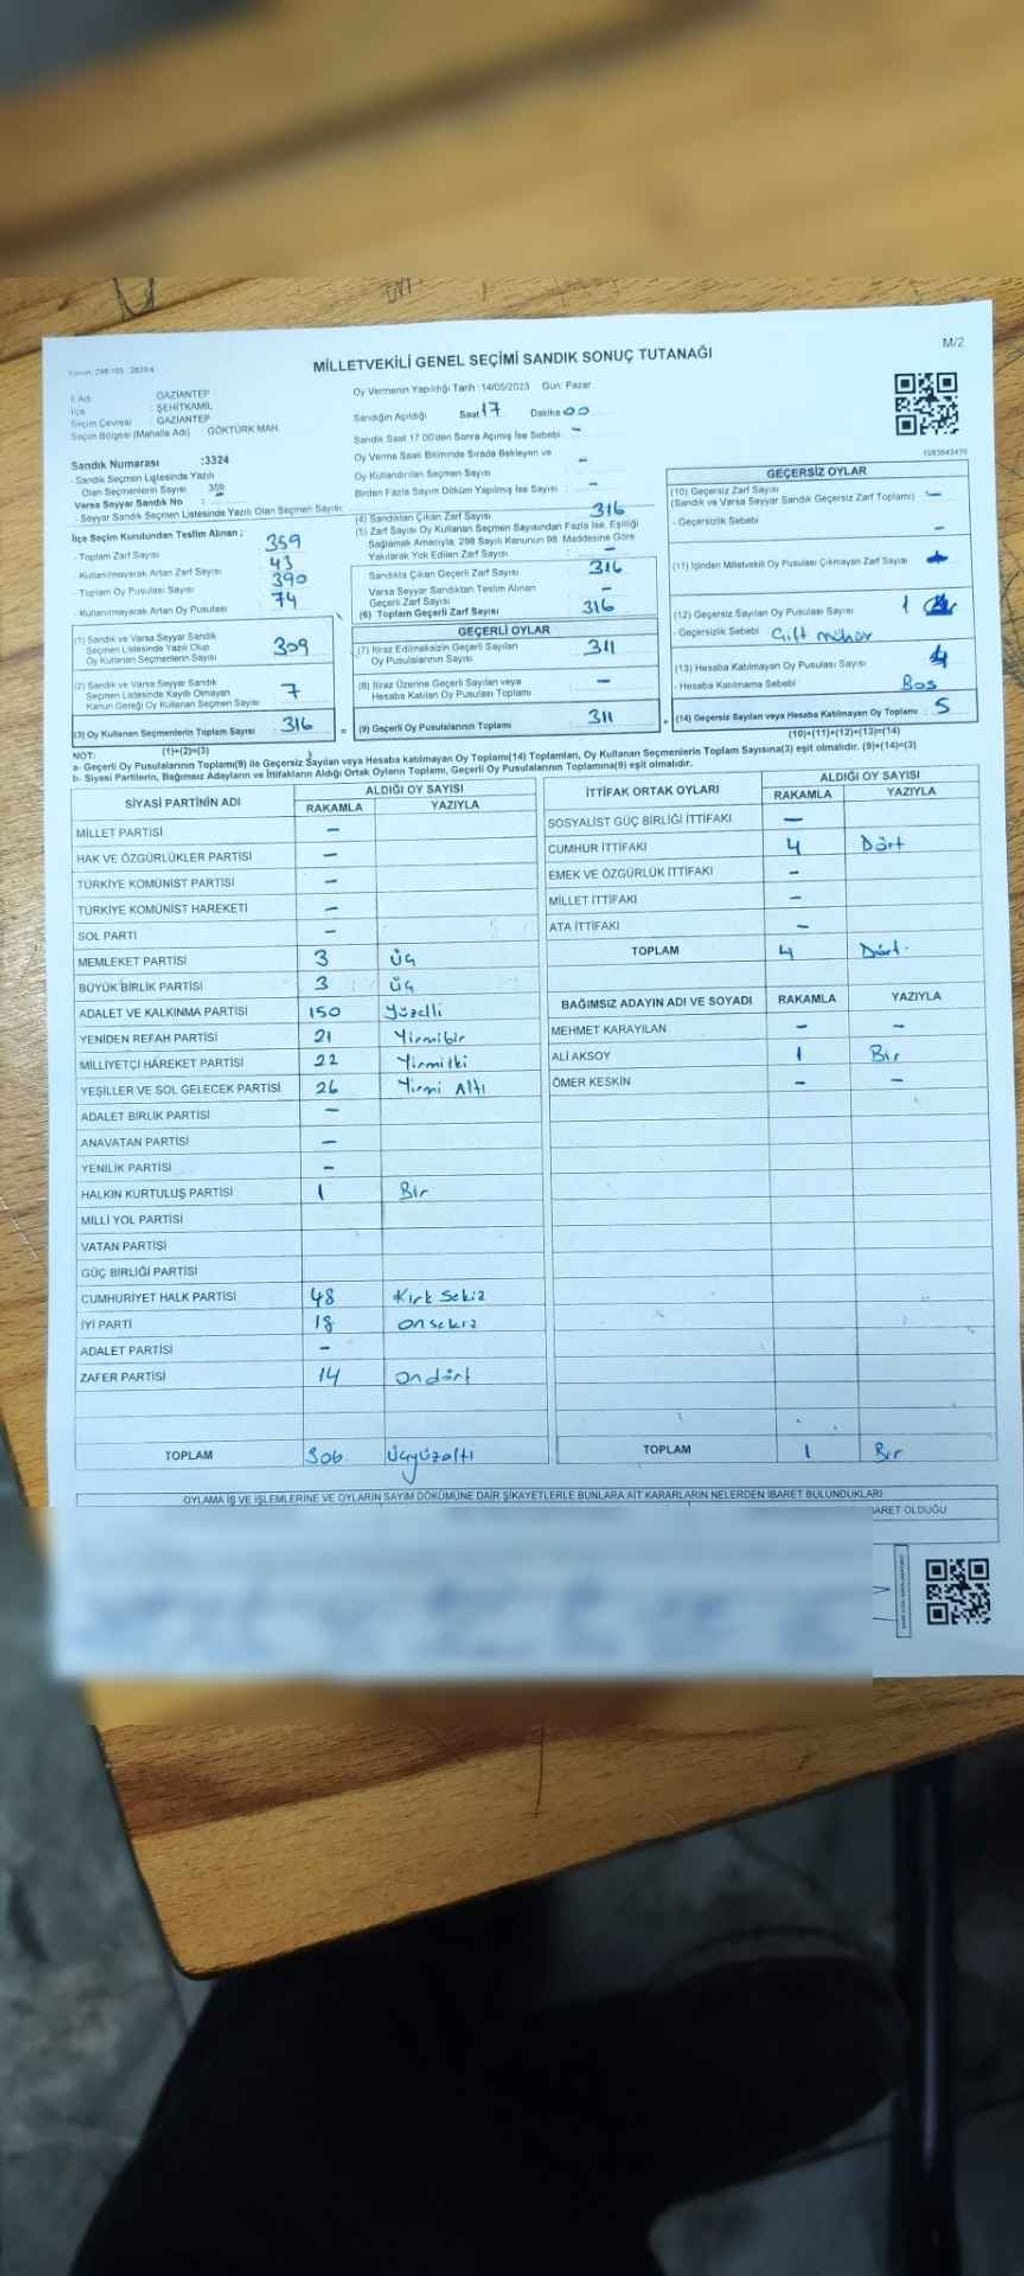 M/2
MİLLETVEKİLİ GENEL SEÇİMİ SANDIK SONUÇ TUTANAĞI
İl Adı : GAZİANTEP
İlçe : ŞEHİTKAMİL
Seçim Çevresi : GAZİANTEP
Seçim Bölgesi (Mahalle Adı) : GÖKTÜRK MAH.
Oy Vermenin Yapıldığı Tarih : 14/05/2023 Gün: Pazar
Sandığın Açıldığı Saat 17 Dakika 00
Sandık Saat 17.00'den Sonra Açılmış İse Sebebi : -
Oy Verme Saati Bitiminde Sırada Bekleyen ve
Oy Kullandırılan Seçmen Sayısı -
Birden Fazla Sayım Döküm Yapılmış İse Sayısı : -
Sandık Numarası :3324
- Sandık Seçmen Listesinde Yazılı
Olan Seçmenlerin Sayısı
Varsa Seyyar Sandık No :
- Seyyar Sandık Seçmen Listesinde Yazılı Olan Seçmen Sayısı
İlçe Seçim Kurulundan Teslim Alınan ;
- Toplam Zarf Sayısı 359
- Kullanılmayarak Artan Zarf Sayısı 43
- Toplam Oy Pusulası Sayısı 390
- Kullanılmayarak Artan Oy Pusulası 74
(1) Sandık ve Varsa Seyyar Sandık
Seçmen Listesinde Yazılı Olup
Oy Kullanan Seçmenlerin Sayısı 309
(2) Sandık ve Varsa Seyyar Sandık
Seçmen Listesinde Kayıtlı Olmayan
Kanun Gereği Oy Kullanan Seçmen Sayısı 7
(3) Oy Kullanan Seçmenlerin Toplam Sayısı 316
(1)+(2)=(3)
(4) Sandıktan Çıkan Zarf Sayısı 316
(5) Zarf Sayısı Oy Kullanan Seçmen Sayısından Fazla İse, Eşitliği
Sağlamak Amacıyla, 298 Sayılı Kanunun 98. Maddesine Göre
Yakılarak Yok Edilen Zarf Sayısı -
Sandıkta Çıkan Geçerli Zarf Sayısı 316
Varsa Seyyar Sandıktan Teslim Alınan
Geçerli Zarf Sayısı -
(6) Toplam Geçerli Zarf Sayısı 316
GEÇERLİ OYLAR
(7) İtiraz Edilmeksizin Geçerli Sayılan
Oy Pusulalarının Sayısı 311
(8) İtiraz Üzerine Geçerli Sayılan veya
Hesaba Katılan Oy Pusulası Toplamı -
(9) Geçerli Oy Pusulalarının Toplamı 311
GEÇERSİZ OYLAR
(10) Geçersiz Zarf Sayısı
(Sandık ve Varsa Seyyar Sandık Geçersiz Zarf Toplamı) -
- Geçersizlik Sebebi -
(11) İçinden Milletvekili Oy Pusulası Çıkmayan Zarf Sayısı
(12) Geçersiz Sayılan Oy Pusulası Sayısı 1
- Geçersizlik Sebebi Çift mühür
(13) Hesaba Katılmayan Oy Pusulası Sayısı 4
- Hesaba Katılmama Sebebi Boş
(14) Geçersiz Sayılan veya Hesaba Katılmayan Oy Toplamı 5
(10)+(11)+(12)+(13)=(14)
NOT:
a- Geçerli Oy Pusulalarının Toplamı(9) ile Geçersiz Sayılan veya Hesaba katılmayan Oy Toplamı(14) Toplamları, Oy Kullanan Seçmenlerin Toplam Sayısına(3) eşit olmalıdır. (9)+(14)=(3)
b- Siyasi Partilerin, Bağımsız Adayların ve İttifakların Aldığı Ortak Oyların Toplamı, Geçerli Oy Pusulalarının Toplamına(9) eşit olmalıdır.
SİYASİ PARTİNİN ADI ALDIĞI OY SAYISI
RAKAMLA YAZIYLA
MİLLET PARTİSİ -
HAK VE ÖZGÜRLÜKLER PARTİSİ -
TÜRKİYE KOMÜNİST PARTİSİ -
TÜRKİYE KOMÜNİST HAREKETİ -
SOL PARTİ -
MEMLEKET PARTİSİ 3 Üç
BÜYÜK BİRLİK PARTİSİ 3 Üç
ADALET VE KALKINMA PARTİSİ 150 Yüzelli
YENİDEN REFAH PARTİSİ 21 Yirmibir
MİLLİYETÇİ HAREKET PARTİSİ 22 Yirmiiki
YEŞİLLER VE SOL GELECEK PARTİSİ 26 Yirmi Altı
ADALET BİRLİK PARTİSİ -
ANAVATAN PARTİSİ -
YENİLİK PARTİSİ -
HALKIN KURTULUŞ PARTİSİ 1 Bir
MİLLİ YOL PARTİSİ
VATAN PARTİSİ
GÜÇ BİRLİĞİ PARTİSİ
CUMHURİYET HALK PARTİSİ 48 Kırk Sekiz
İYİ PARTİ 18 onsekiz
ADALET PARTİSİ -
ZAFER PARTİSİ 14 ondört
TOPLAM 306 Üçyüzaltı
İTTİFAK ORTAK OYLARI ALDIĞI OY SAYISI
RAKAMLA YAZIYLA
SOSYALİST GÜÇ BİRLİĞİ İTTİFAKI -
CUMHUR İTTİFAKI 4 Dört
EMEK VE ÖZGÜRLÜK İTTİFAKI -
MİLLET İTTİFAKI -
ATA İTTİFAKI -
TOPLAM 4 Dört
BAĞIMSIZ ADAYIN ADI VE SOYADI RAKAMLA YAZIYLA
MEHMET KARAYILAN - -
ALİ AKSOY 1 Bir
ÖMER KESKİN - -
TOPLAM 1 Bir
OYLAMA İŞ VE İŞLEMLERİNE VE OYLARIN SAYIM DÖKÜMÜNE DAİR ŞİKAYETLERLE BUNLARA AİT KARARLARIN NELERDEN İBARET BULUNDUKLARI
İBARET OLDUĞU